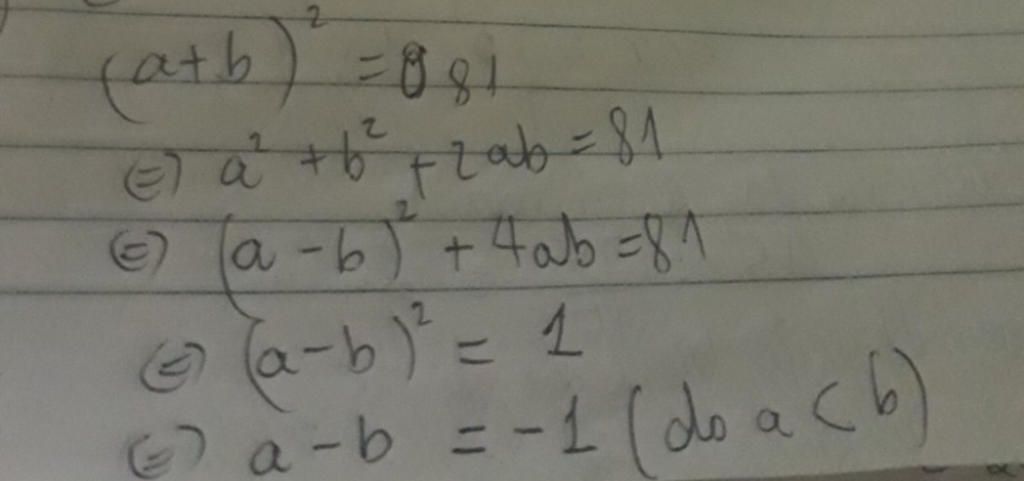 (a+b)² = 81
⇔ a² + b² + 2ab = 81
⇔ (a - b)² + 4ab = 81
⇔ (a - b)² = 1
⇔ a - b = -1 (do a < b)